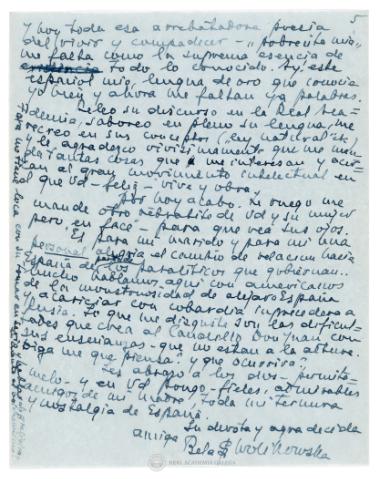 5
y hoy toda esa arrebatadora poesia
del vivir y compadecer – "pobrecito mío"
me falta como la suprema esencia de
todo lo conocido. Ay, este
español mío, lengua de oro que conocia
yo bien y ahora me faltan ya palabras.
Releo su discurso en la Real Aca-
demia, saboreo en pleno su lengua, me
recreo en sus conceptos (¡muy natural es!)
y le agradezco vivisimamente que me man-
da tantas cosas que me interesan y
al gran movimiento intelectual en
el que Vd – feliz – vive y obra.
Por hoy acabo. Le ruego me
mande otro retratito de Vd y su mujer
pero "en face" – para que vea sus ojos.
Es para mi marido y para mi una
personal alegria el cambio de relacion hacia
España de los que gobiernan.
Mucho hablamos aquí con americanos
de la monstruosidad de alejar España
y acariciar con cobardia
Rusia. Lo que me disgusta son las dificul-
tades que crea al Caudillo Don Juan con
sus enseñanzas – que no están a la altura.
Diga me que piensa y que ocurrira?
Les abrazo a los dos permita-
melo – y en Vd pongo – fieles, admirables
amigos de mi Madre toda mi ternura
y nostalgia de España.
Su devota y agradecida
amiga
REAL ACADEMIA GALEGA